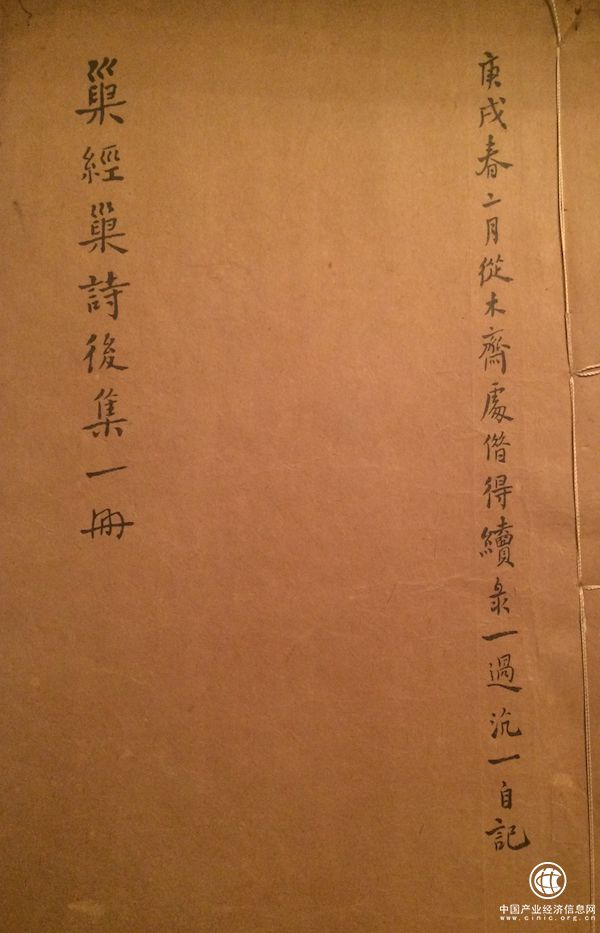 庚戌春二月從木齋處偺得續彔一過沆一自記
巢經巢詩後集一冊
中国产业经济信息网
www.cinic.org.cn